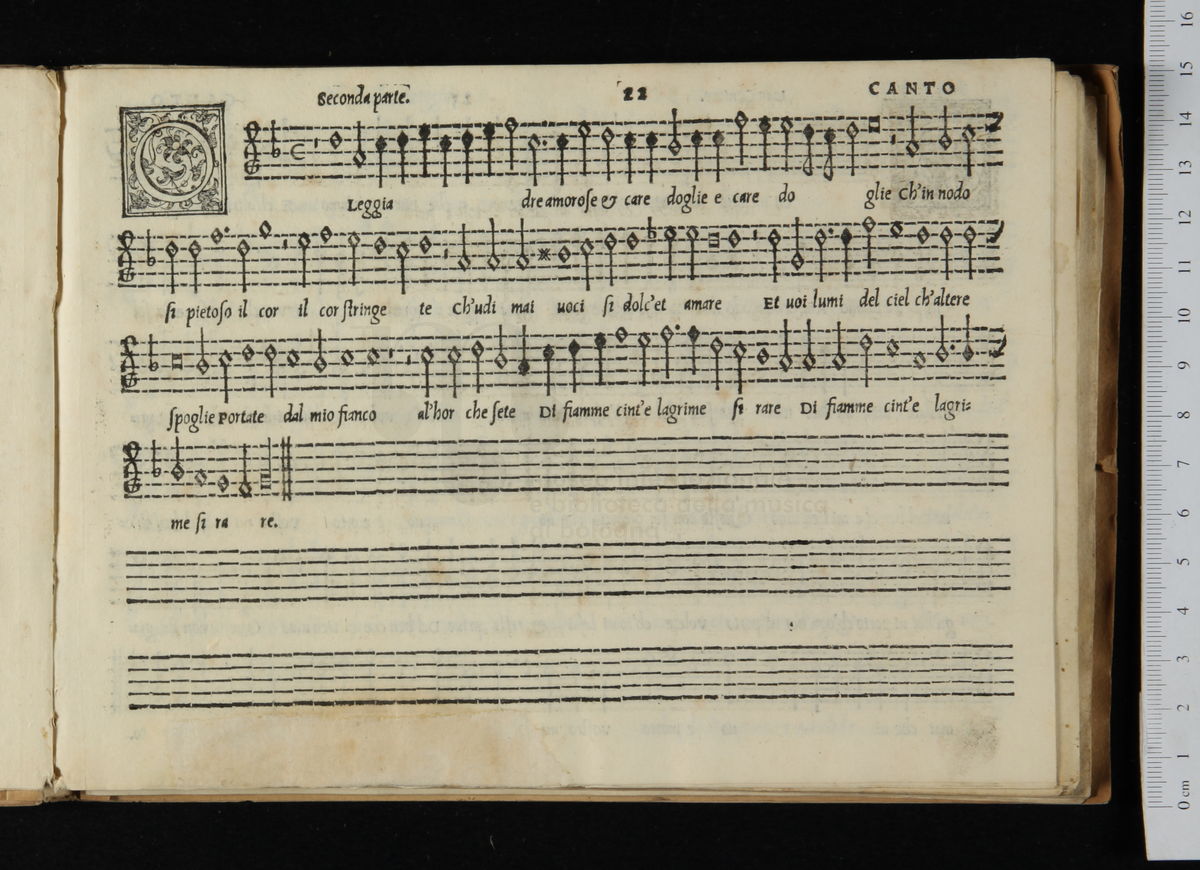 Seconda parte. 22 CANTO
O Leggia dre amorose & care doglie e care do glie Ch'in nodo
si pietoso il cor il cor stringe te Ch'udi mai uoci si dolc'et amare Et uoi lumi del ciel ch'altere
spoglie Portate dal mio fianco al'hor che sete Di fiamme cint'e lagrime si rare Di fiamme cint'e lagri=
me si ra re.
e biblioteca della musica
di bologna
16
15
14
13
12
11
10
9
8
7
6
5
4
3
2
1
0 cm